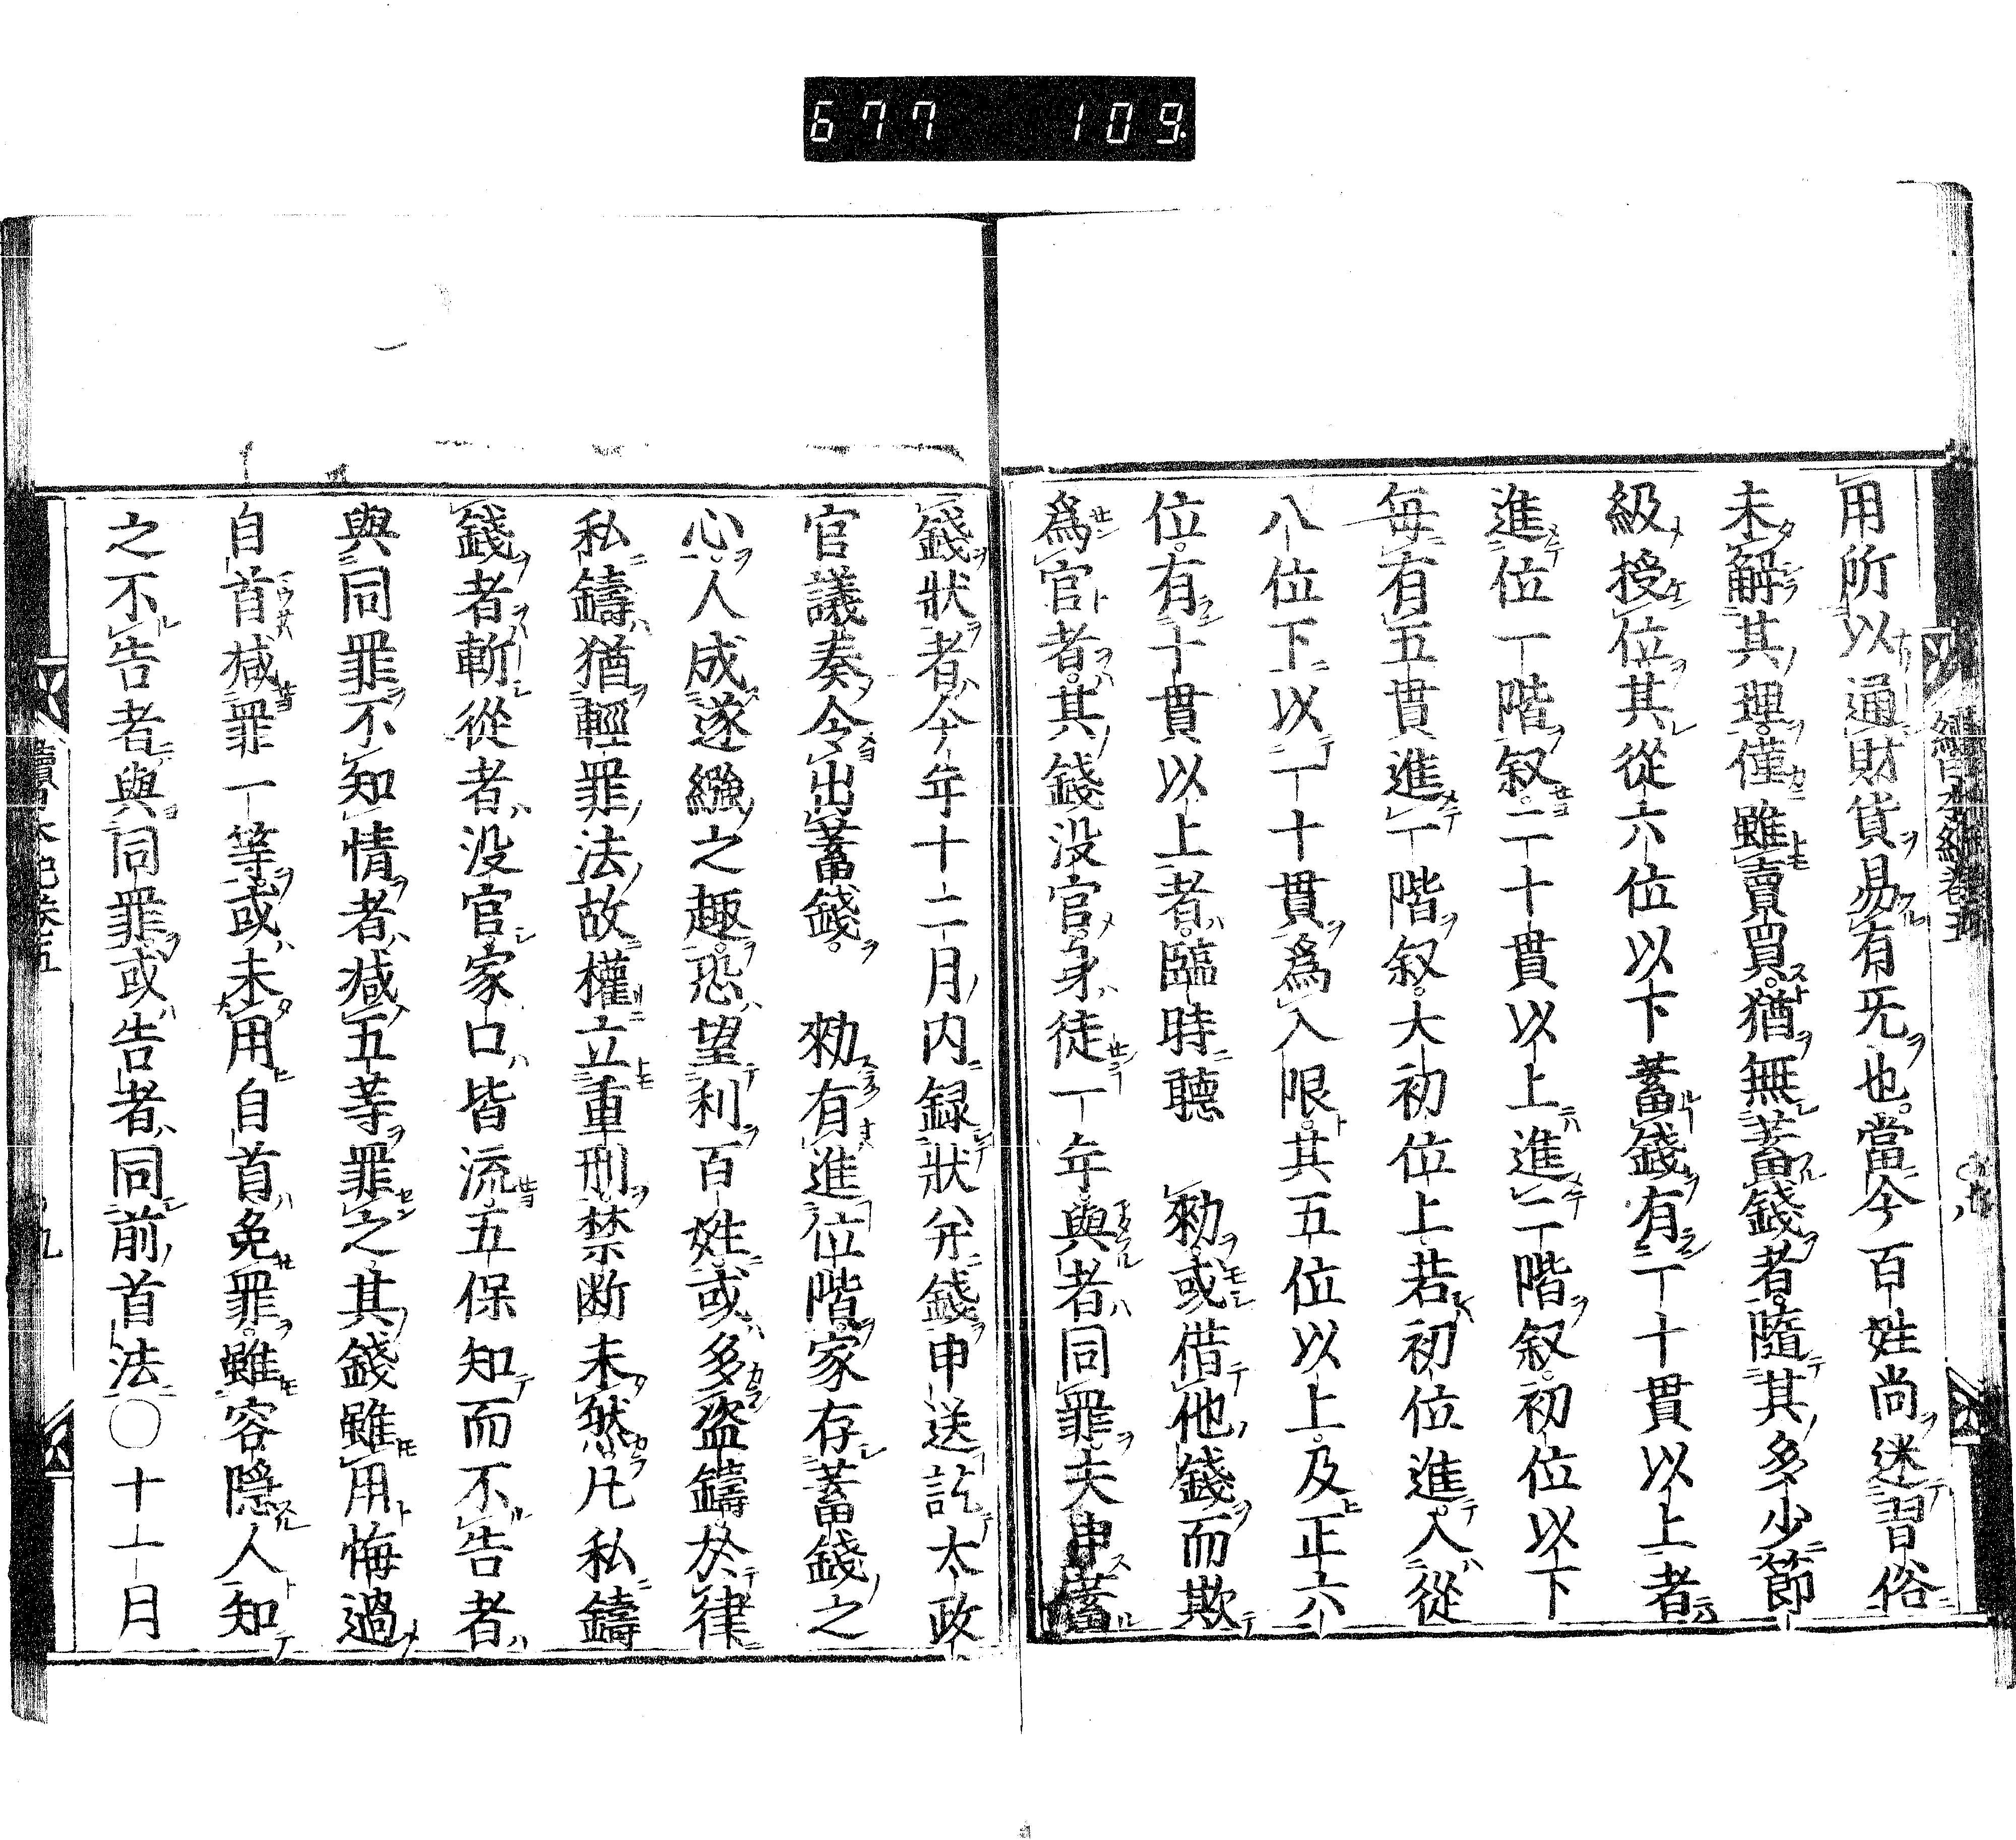 677 109
用所以通財貨易有无也當今百姓尚迷習俗
未解其理僅雖賣買猶無蓄錢者隨其多少節
級授位其從六位以下蓄錢有一十貫以上者
進位一階叙二十貫以上進二階叙初位以下
毎有五貫進一階叙大初位上若初位進入從
八位下以一十貫爲入限其五位以上及正六
位有十貫以上者臨時聽 勑或借他錢而欺
爲官者其錢没官身徒一年與者同罪夫申蓄
錢狀者今年十二月内録狀并錢申送訖太政
官議奏令出蓄錢 勑有進位階家存蓄錢之
心人成逐繦之趣恐望利百姓或多盗鑄於律
私鑄猶輕罪法故權立重刑禁断未然凡私鑄
錢者斬從者没官家口皆流五保知而不告者
與同罪不知情者减五等罪之其錢雖用悔過
自首减罪一等或未用自首免罪雖容隠人知
之不告者與同罪或告者同前首法〇十一月
續日本紀卷五
九